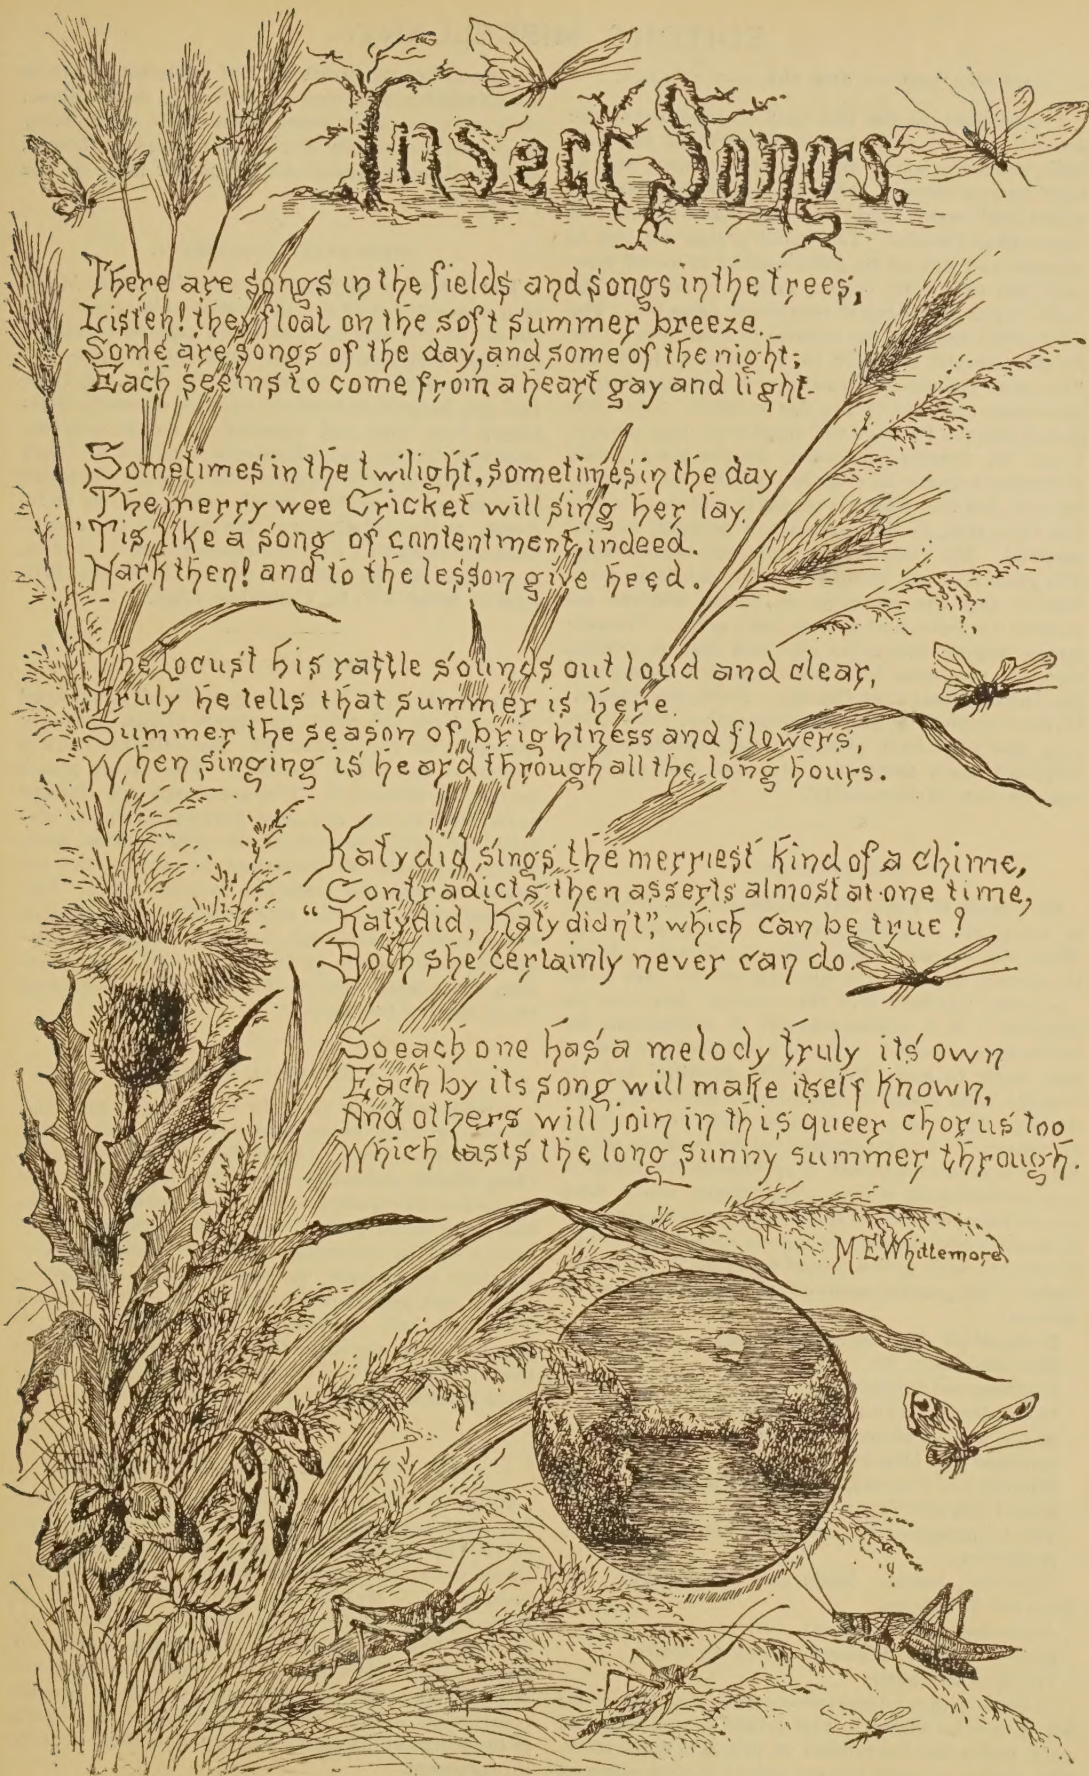 Insect Songs.
There are songs in the fields and songs in the trees,
Listen! they float on the soft summer breeze.
Some are songs of the day, and some of the night;
Each seems to come from a heart gay and light.
Sometimes in the twilight, sometimes in the day
The merry wee Cricket will sing her lay.
'Tis like a song of contentment, indeed.
Hark then! and to the lesson give heed.
The Locust his rattle sounds out loud and clear,
Truly he tells that summer is here.
Summer the season of brightness and flowers,
When singing is heard through all the long hours.
Katydid sings the merriest kind of a chime,
Contradicts then asserts almost at one time,
"Katydid, Katy didn't", which can be true?
Both she certainly never can do.
So each one has a melody truly its own
Each by its song will make itself known,
And others will join in this queer chorus too
Which lasts the long sunny summer through.
M.E.Whittemore